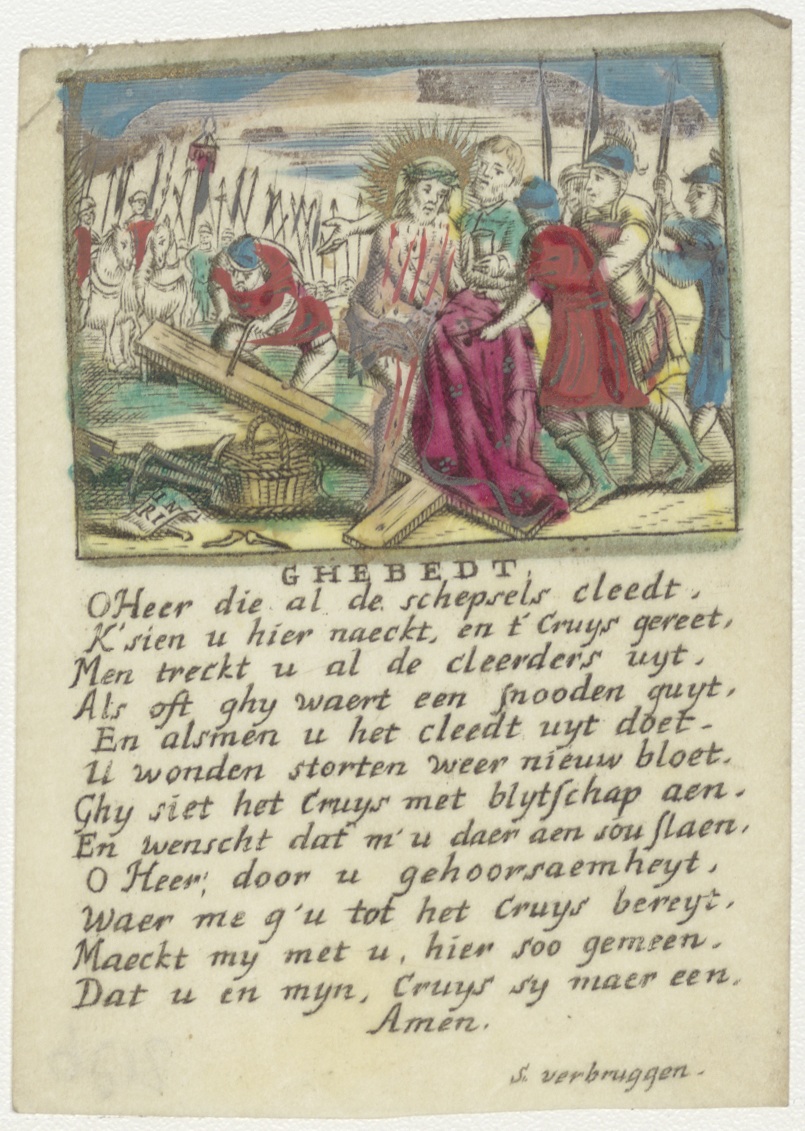 IN
RI
GHEBEDT.
O Heer die al de schepsels cleedt,
K'sien u hier naeckt, en t' Cruys gereet,
Men treckt u al de cleerders uyt,
Als oft ghy waert een snooden guyt,
En alsmen u het cleedt uyt doet.
U wonden storten weer nieuw bloet.
Ghy siet het Cruys met blytschap aen.
En wenscht dat m'u daer aen sou slaen,
O Heer, door u gehoorsaemheyt,
Waer me g'u tot het Cruys bereyt,
Maeckt my met u, hier soo gemeen.
Dat u en myn, Cruys sy maer een.
Amen.
s. verbruggen.